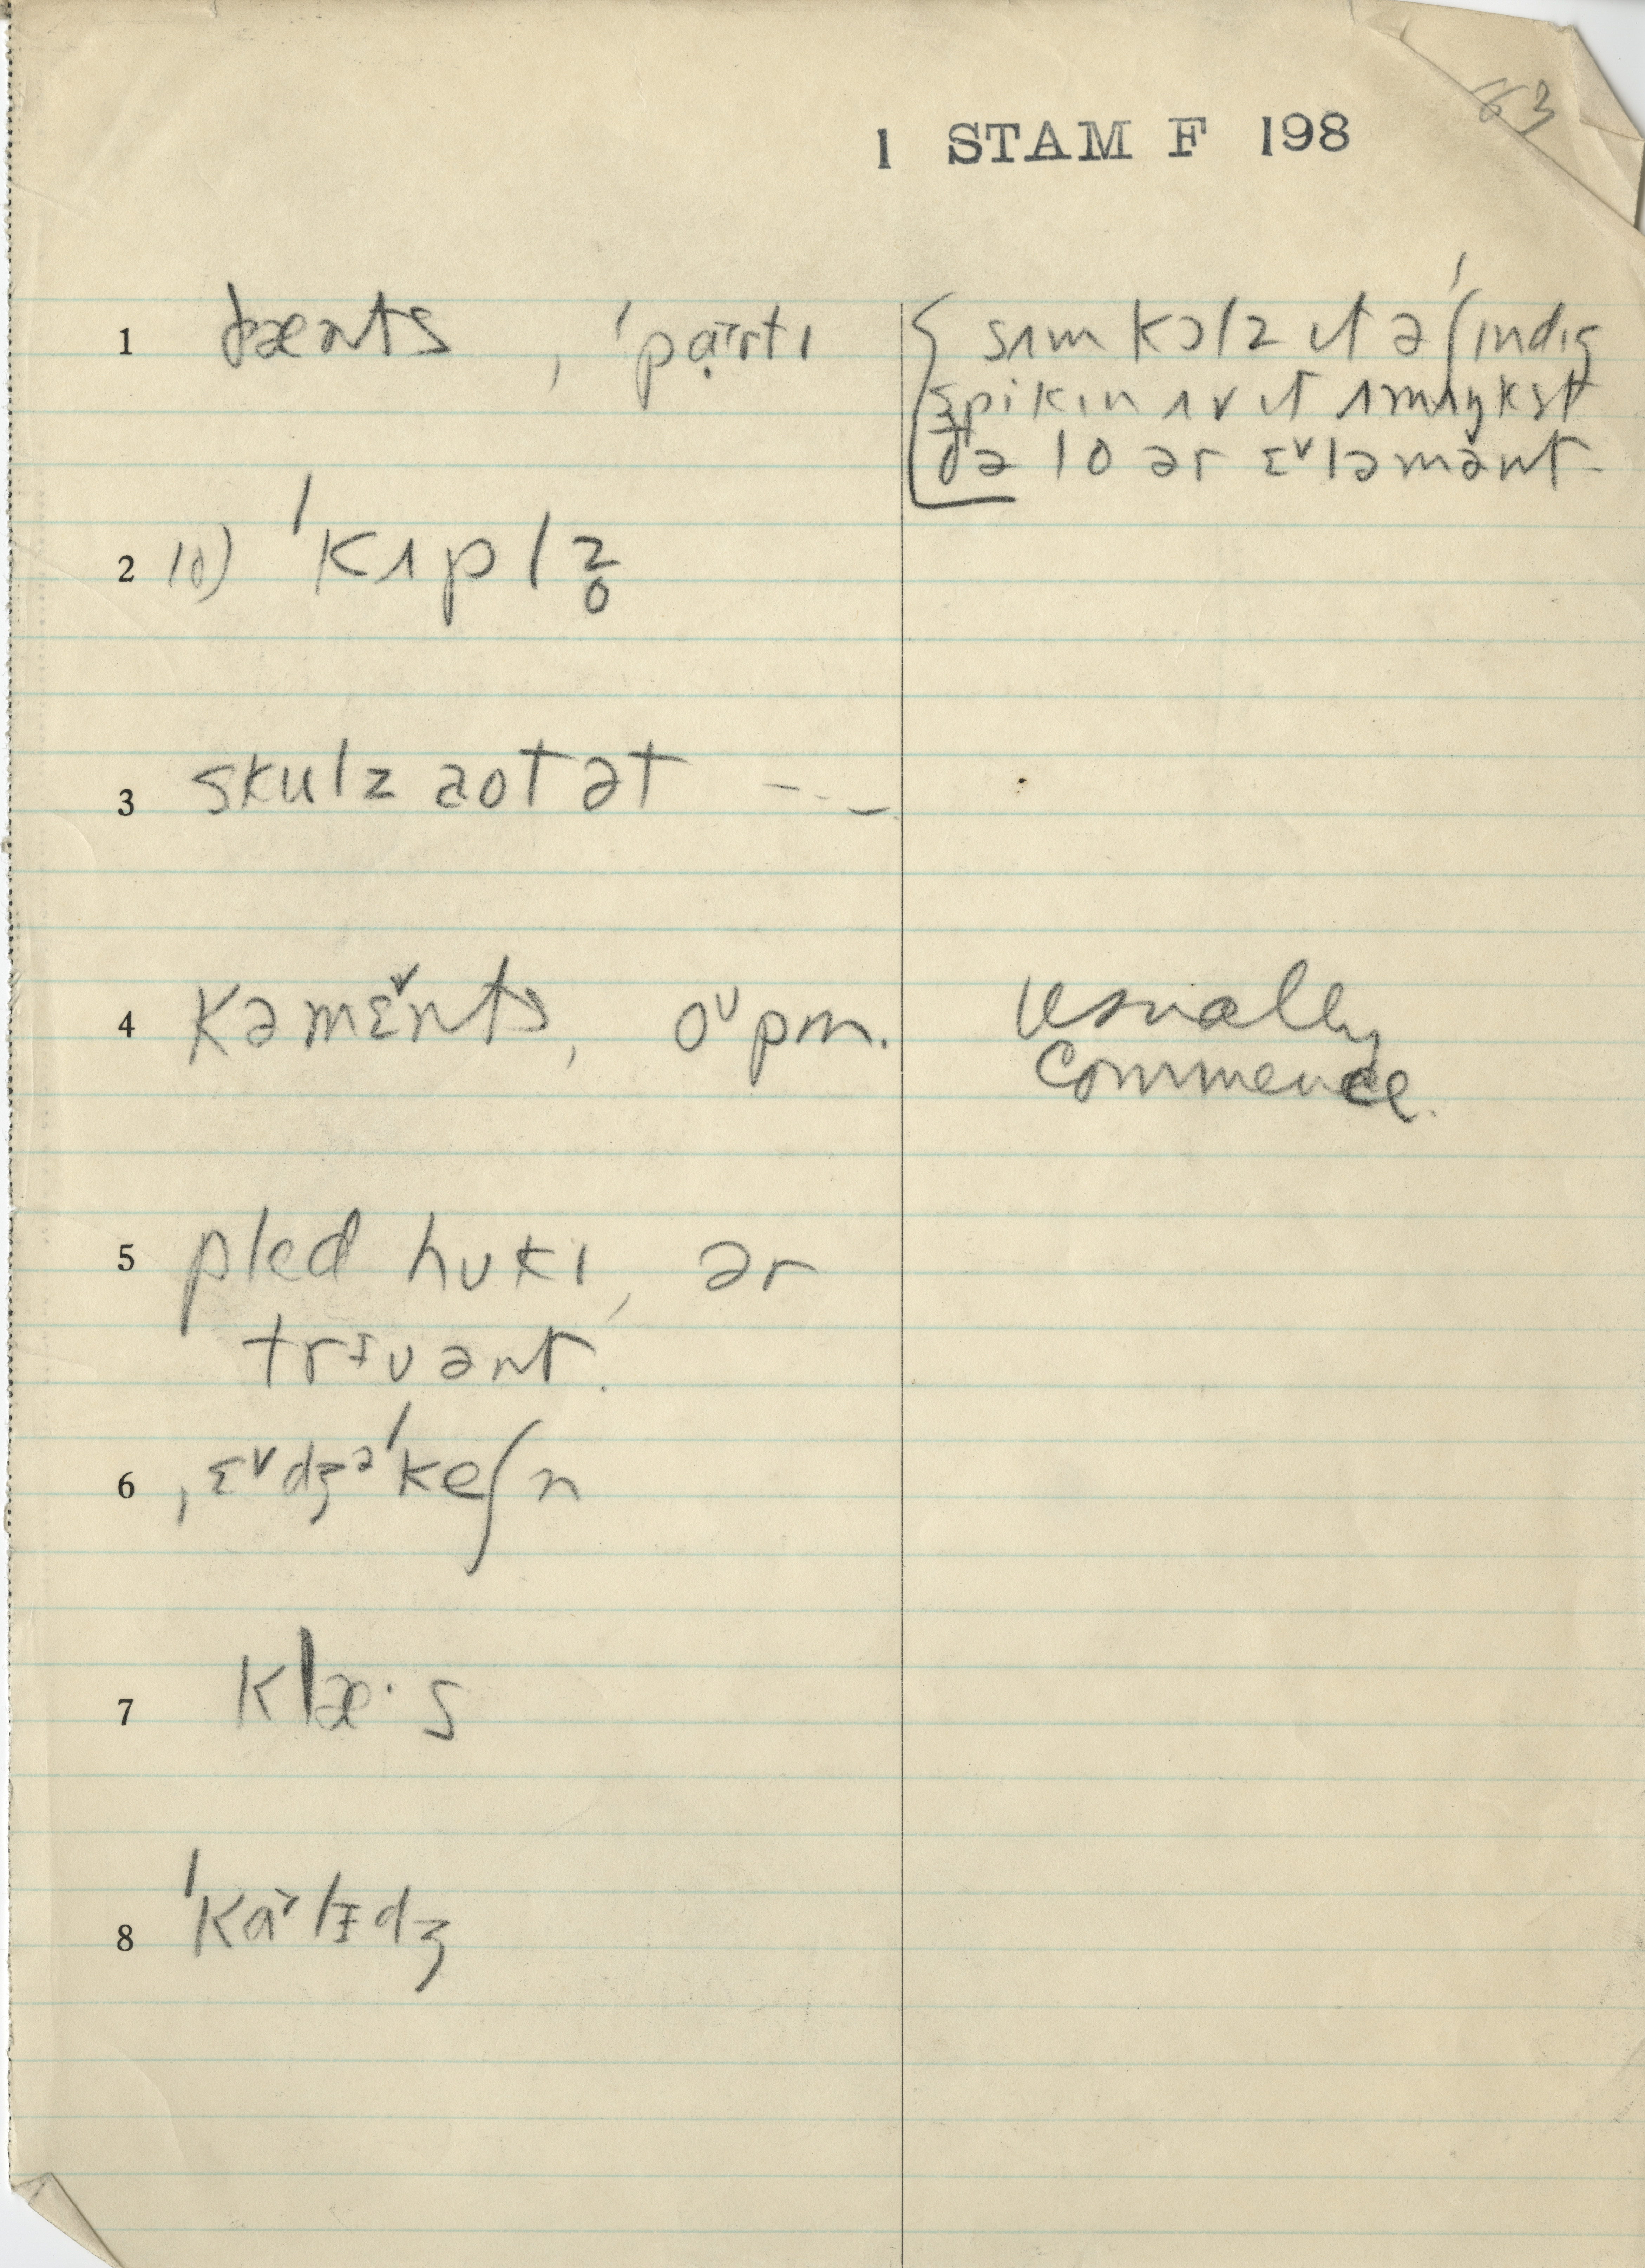 63
1 STAM F 198
1 dænts, ˈpaˑrtɪ
sʌm kɔlz ɪt ə ˈʃɪndɪg
spikɪn ʌv ɪt ʌmʌŋkst
ðə lo ər ɛᵛləmənt-
2 10) ˈkʌplz̥
3 skulz aot ət ---
4 kəmɛᵛnts, oᵘpm.
usually
commence.
5 pled hʊkɪ, ər
trɪuənt.
6 ˌɛᵛdʒəˈkeʃn
7 klæ·s
8 ˈkɑˇlɪdʒ